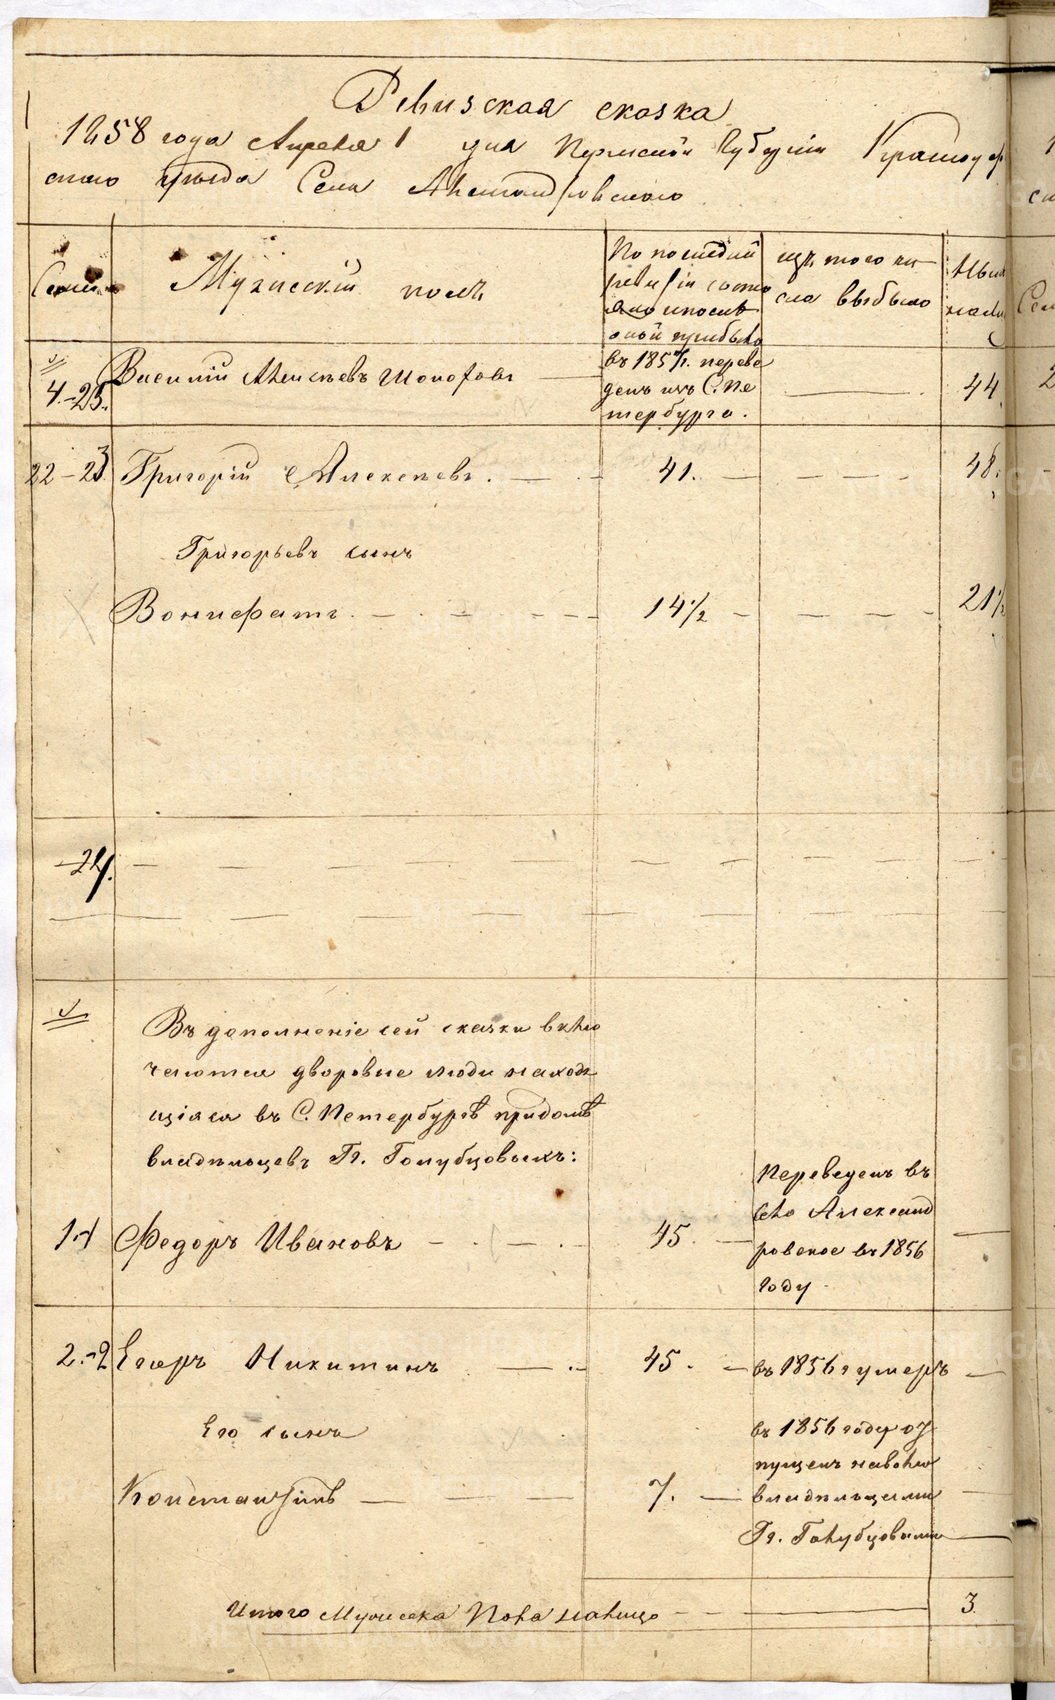 Ревизская сказка
1858 года Апреля 1 дня Пермской Губернии Красноуф
скаго уезда Села Александровскаго
Семьи
Мужеский полъ
По последней
ревизiи состо
яло и после
оной прибыло
изъ того чи
сла выбыло
Ныне
нали
4.-23.
Василий Алексеевъ Шолохов
въ 1857 г. переве
денъ изъ С. Пе
тербурга.
44
22-23
Григорiй Алексеевъ.
41.
48.
Григорьевъ сынъ
Вонифатъ.
14 1/2
21 1/2
-24.
Въ дополненiе сей сказки вклю
чаются дворовые люди находя
щiяся въ С. Петербургѣ при домѣ
владѣльцевъ Гг. Голубцовыхъ:
1-1
Федоръ Ивановъ
45.
Переведенъ въ
село Александ
ровское въ 1856
году.
2.-2
Егоръ Никитинъ
45.
въ 1856 г умеръ
Его сынъ
Константинъ
7.
въ 1856 году от
пущенъ на волю
владѣльцами
Гг. Голубцовыми
Итого Мужеска Пола налицо
3